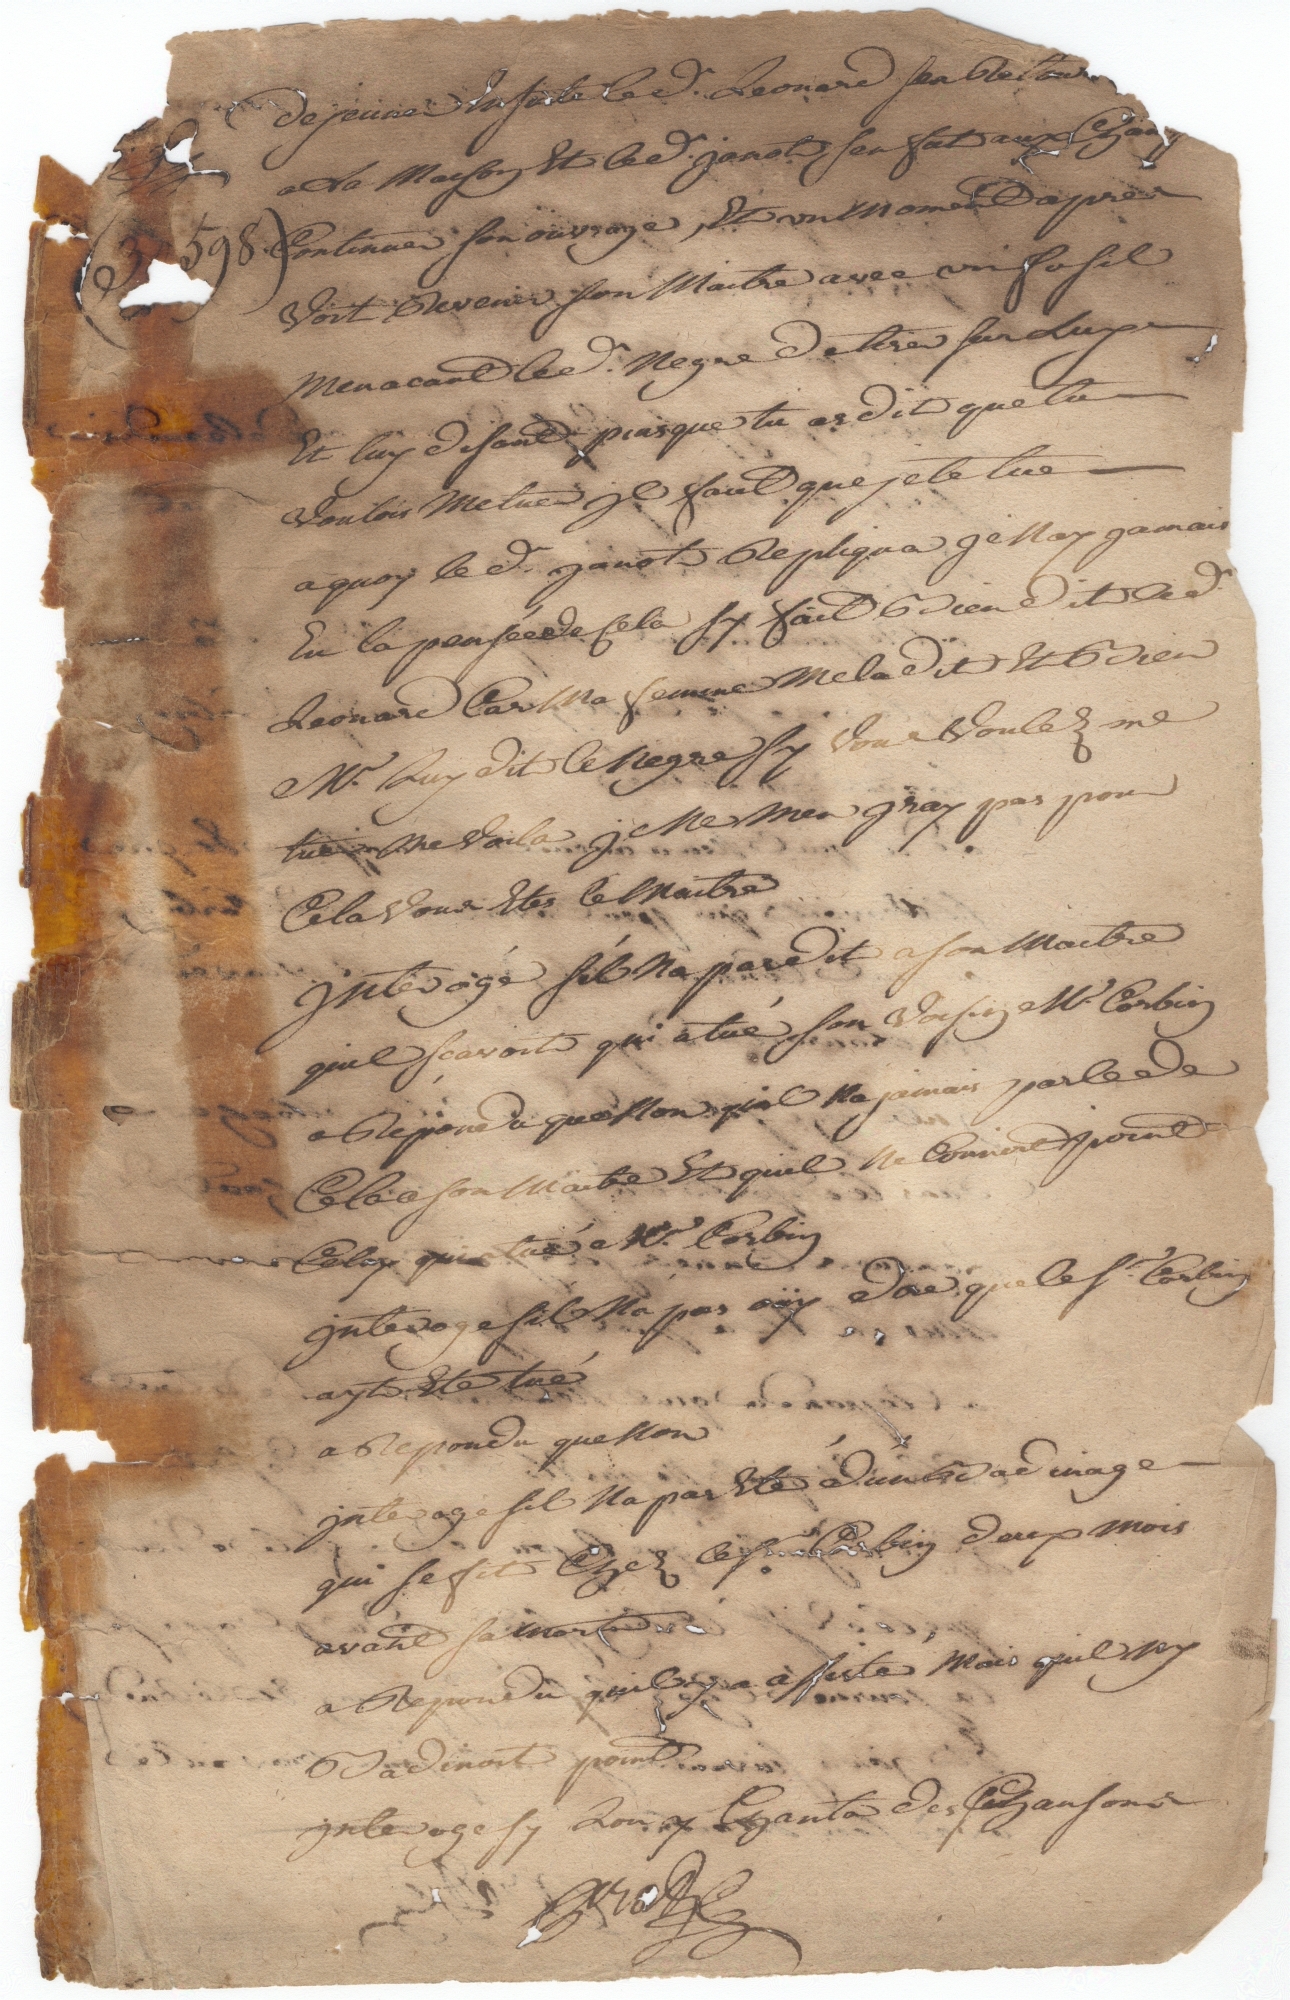 dejeuner Ensuite led. Leonard sen Retour
a la Maison Et led. janot sen fut aux Champ
(3 598) Continuer son ouvrage, Et un Moment apres
Voit Revenir son Maitre avec un fusil
Menacant led. Negre de tirer sur luy
Et luy disant puisque tu as dit que tu
Voulois Me tuer jl faut que je te tue
a quoy led. janot Repliqua je Nay jamais
Eu la pensée de cela sy fait Bien dit led.
Leonard Car Ma femme Me la dit Et Bien
Mr. Luy dit le Negre sy Vous Voulez me
tuer Me Voila je Ne Men jray pas pour
Cela Vous Etes le Maitre
jnterogé sil Na pas dit a son Maitre
quil scavoit qui a tué son Voisin Mr. Corbin
a Repondu que Non quil Na jamais parle de
Cela a son Maitre Et quil Ne Connoit point
Celuy qui a tué Mr. Corbin
jnteroge sil Na pas oüy dire que le Sr. Corbin
ayt Eté tué
a Repondu que Non
jnteroge sil Na pas Eté d'un Badinage
qui se fit Chez le Sr. Corbin deux mois
avant sa mort
a Repondu quil y a assisté Mais quil Ny
Badinoit point
jnteroge sy Lon y Chanta des Chansons